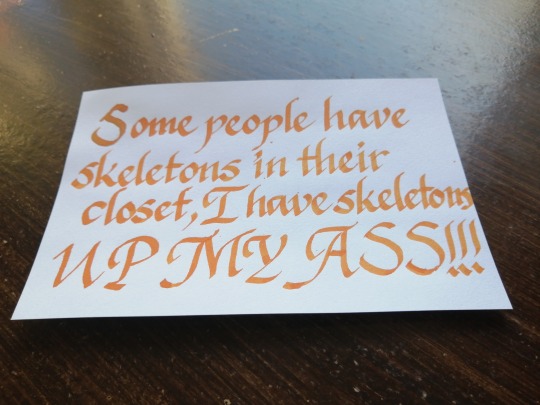 Some people have
skeletons in their
closet, I have skeletons
UP MY ASS!!!